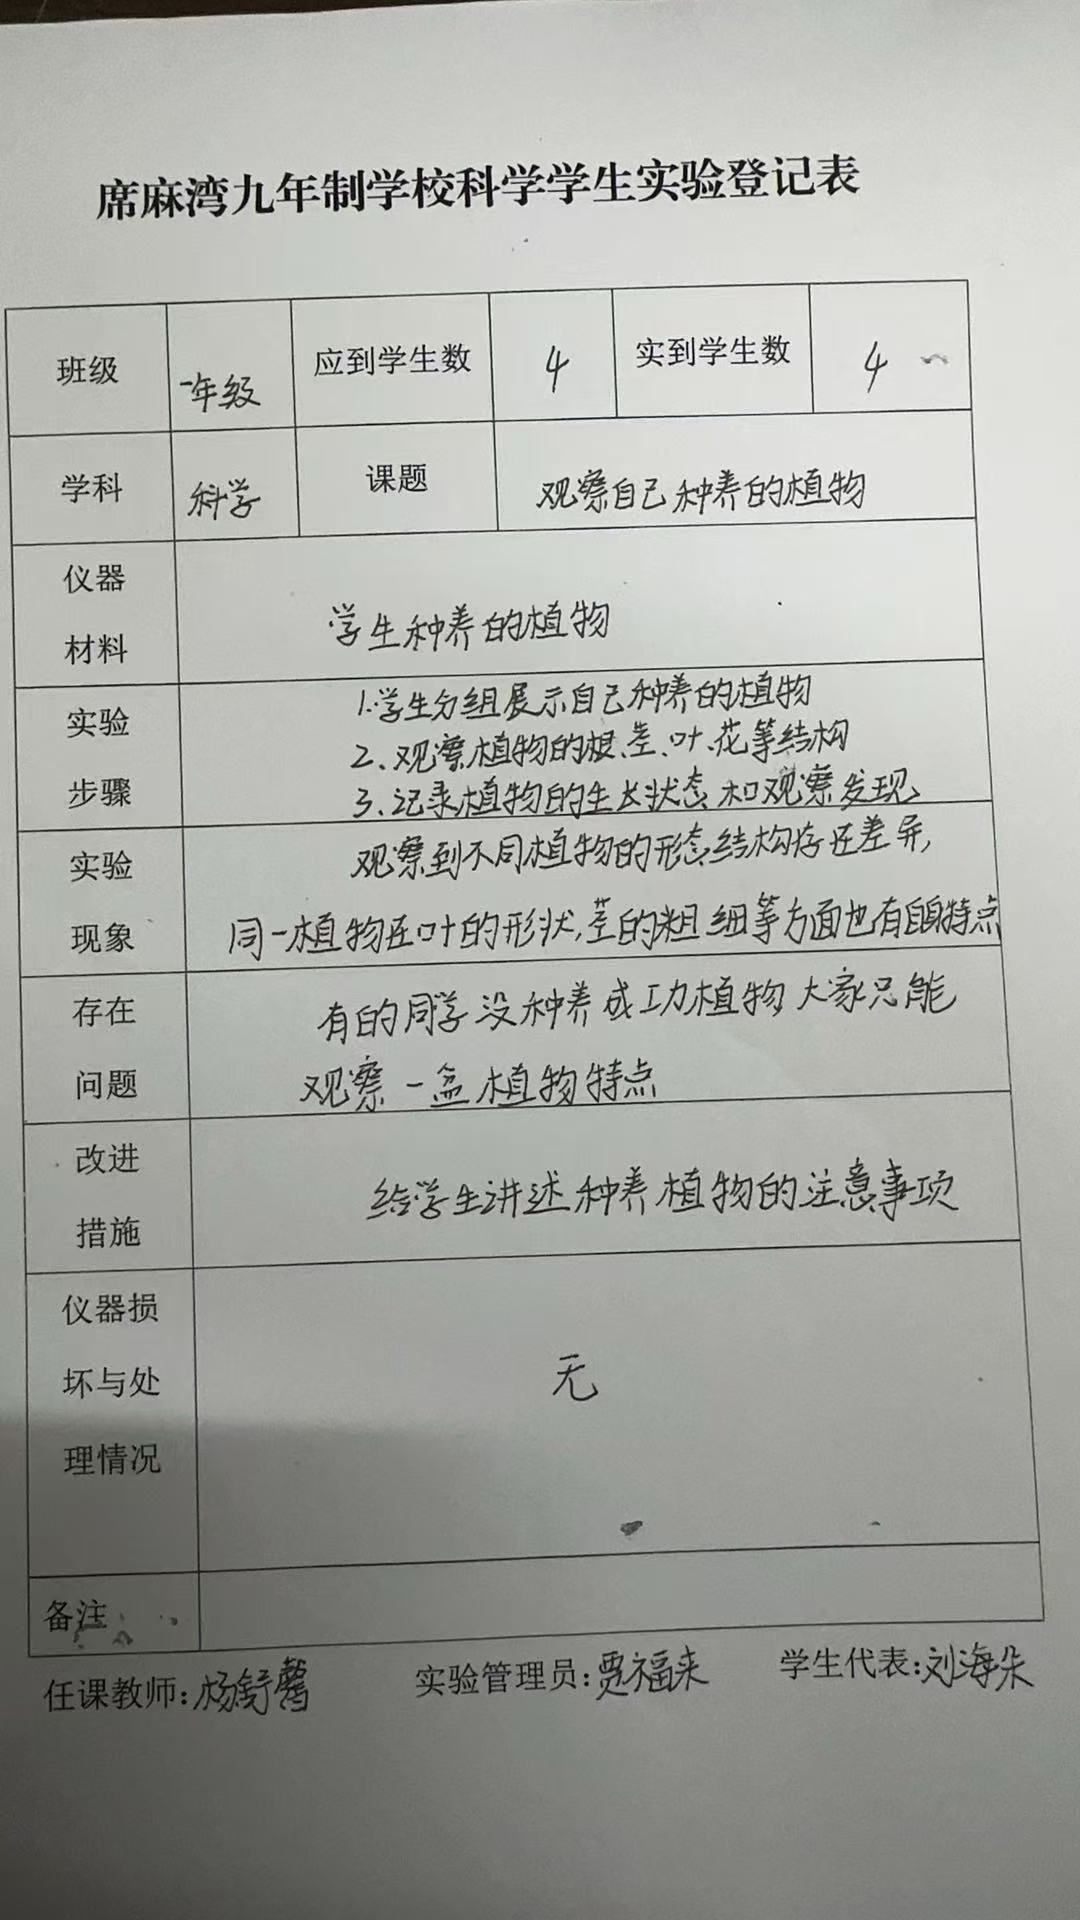 席麻湾九年制学校科学学生实验登记表
班级 一年级 应到学生数 4 实到学生数 4
学科 科学 课题 观察自己种养的植物
仪器
材料
学生种养的植物
实验
步骤
1.学生分组展示自己种养的植物
2、观察植物的根、茎、叶、花等结构
3、记录植物的生长状态和观察发现
实验
现象
观察到不同植物的形态结构存在差异,
同一植物在叶的形状,茎的粗细等方面也有自身特点
存在
问题
有的同学没种养成功植物大家只能
观察一盆植物特点
改进
措施
给学生讲述种养植物的注意事项
仪器损
坏与处
理情况
无
备注
任课教师:杨舒馨 实验管理员:贾福来 学生代表:刘海朱